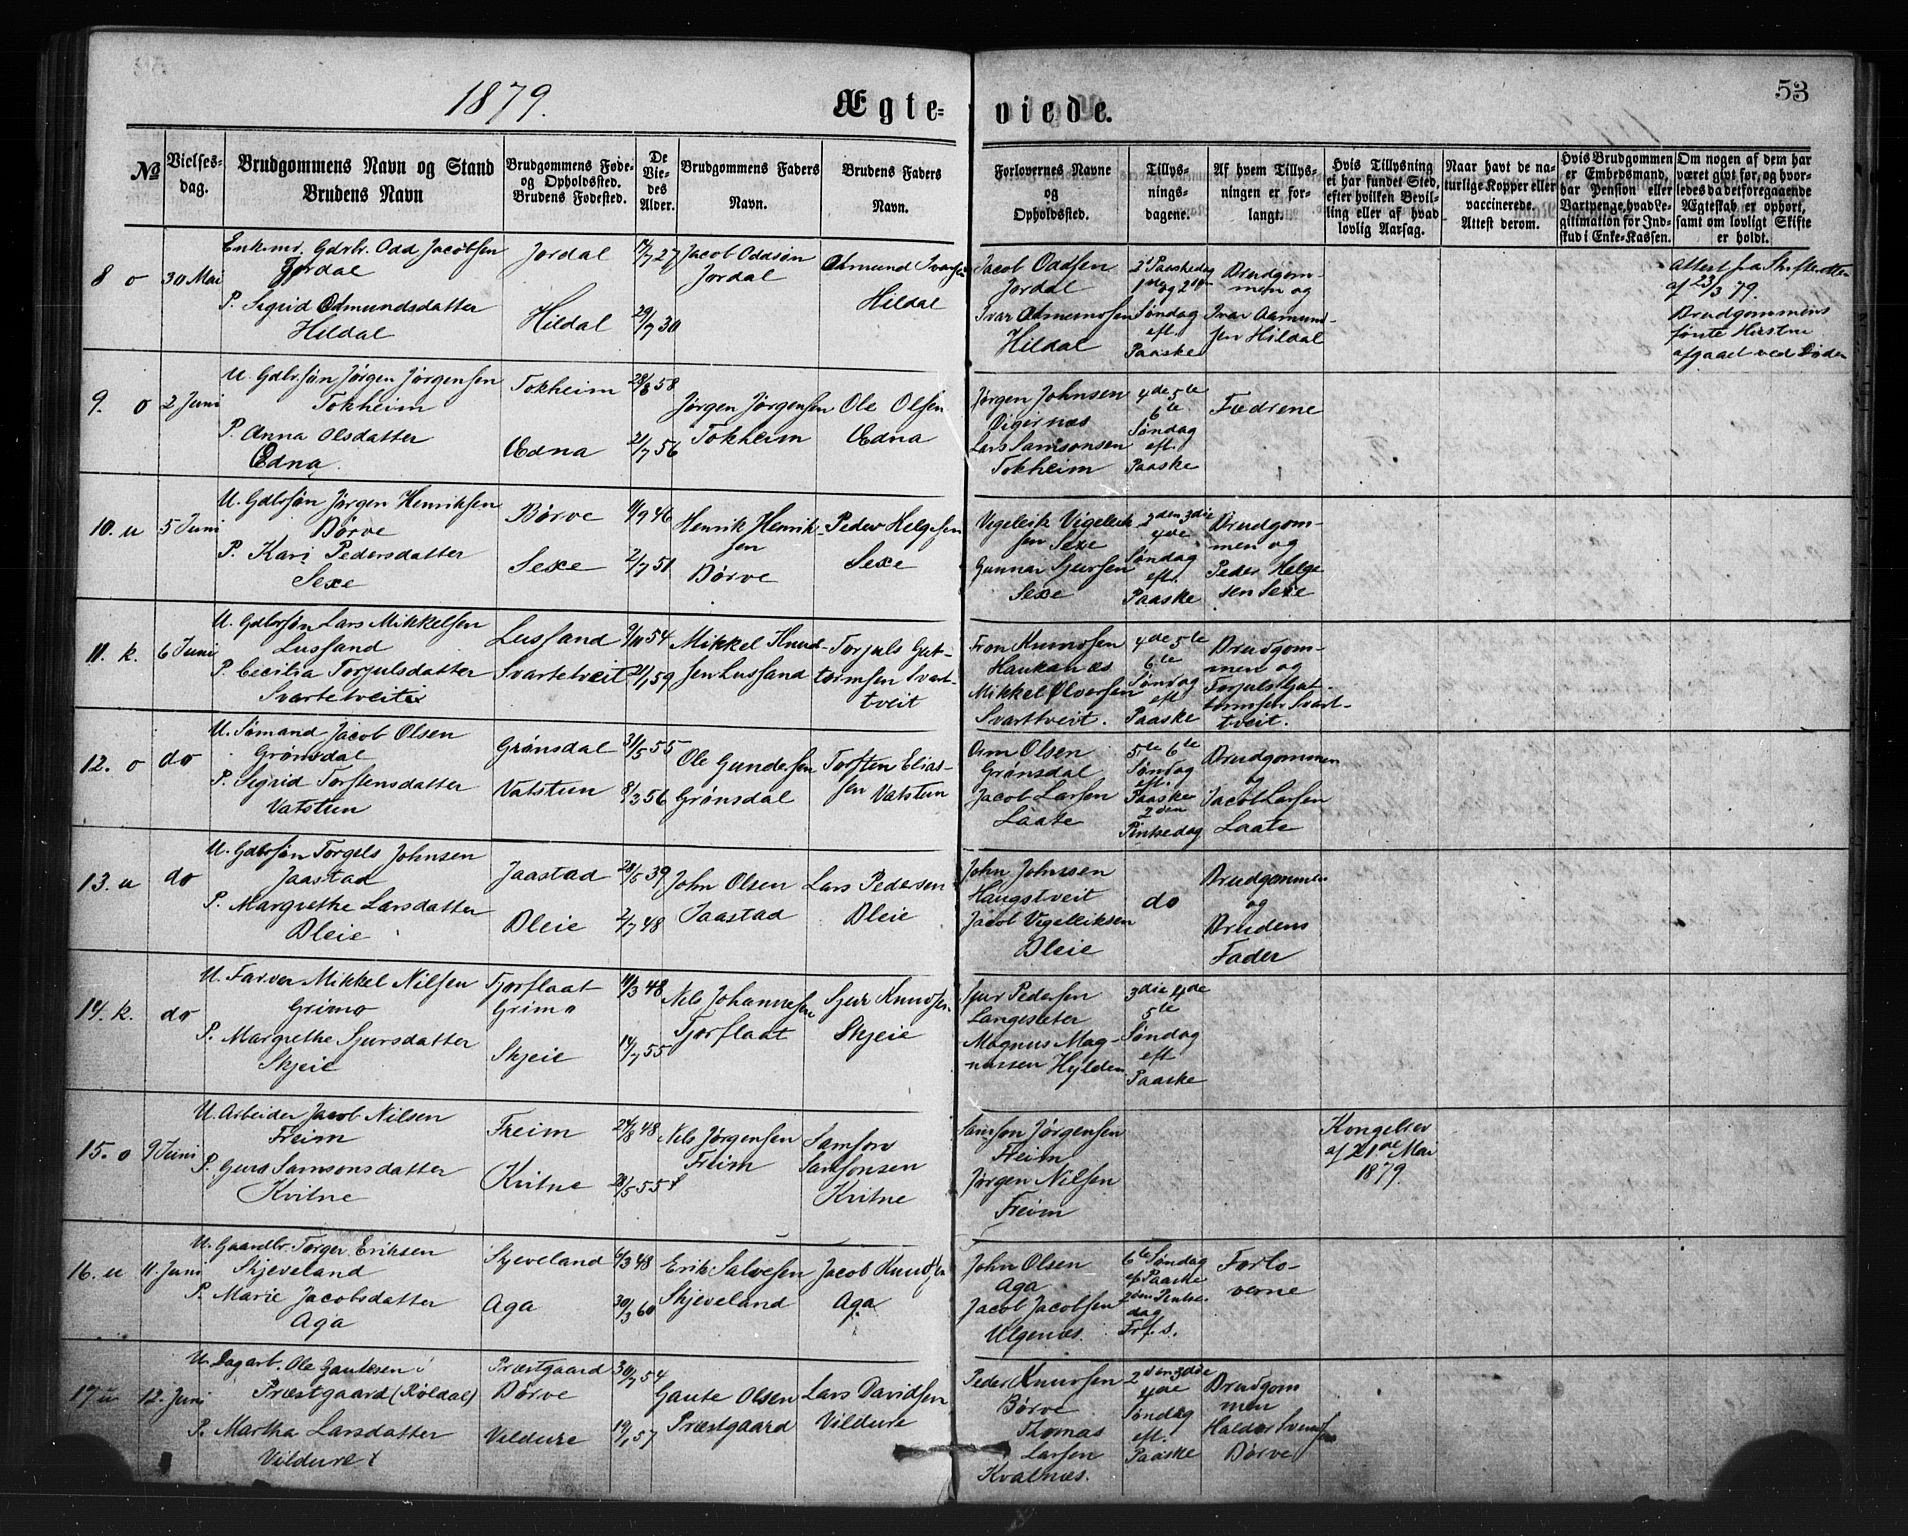 1879.
Ægte-
viede.
53
№
Vielses-
dag.
Brudgommens Navn og Stand
Brudens Navn
Brudgommens Føde-
og Opholdssted.
Brudens Fødested.
De
Vie-
des
Alder.
Brudgommens Faders
Navn.
Brudens Faders
Navn.
Forlovernes Navne
og
Opholdssted.
Tillys-
nings-
dagene.
Af hvem Tillys-
ningen er for-
langt.
Hvis Tillysning
ei har fundet Sted,
efter hvilken Bevil-
ling eller af hvad
lovlig Aarsag.
Naar havt de na-
turlige Kopper eller
vaccinerede.
Attest derom.
Hvis Brudgommen
er Embedsmand,
har Pension eller
Vartpenge, hvad Le-
gitimation for Ind-
skud i Enke-Kassen.
Om nogen af dem har
været givt før, og hvor-
ledes da det foregaaende
Ægteskab er ophørt,
samt om lovligt Skifte
er holdt.
8 o 30 Mai
Enkem. Gdbr. Odd Jacobsen
Jordal
P. Sigrid Odmundsdatter
Hildal
Jordal
Hildal
27
29/7 30
Jacob Oddsøn
Jordal
Odmund Ivarsen
Hildal
Jacob Oddsen
Jordal
Ivar
Hildal
2den Paaskedag
1ste og 2den
Søndag
eft.
Paaske
Brudgom-
men og
Ivar Aamund-
sen Hildal
Attest fra Skifteretten
af 23/3 79.
Brudgommens
første Hustru
afgaaet ved Døden
9. o 2 Juni
U. Gdbrsøn Jørgen Jørgensen
Tokheim
P. Anna Olsdatter
Ædna.
Tokheim
Ædna
28/8 58
21/7 56
Jørgen Jørgensen
Tokheim
Ole Olsen
Ædna
Jørgen Johnsen
Digernæs
Lars Samsonsen
Tokheim
4de 5te
6te
Søndag
eft.
Paaske
Fædrene
10. u 5 Juni
U. Gdbrsøn Jørgen Henriksen
Børve
P. Kari Pedersdatter
Sexe
Børve
Sexe
11/9 46
2/7 51
Henrik Henrik-
sen
Børve
Peder Helgesen
Sexe
Vigeleik Vigeleik
sen Sexe
Gunnar Sjursen
Sexe
2den 3die
4de
Søndag
eft.
Paaske
Brudgom-
men og
Peder Helge
sen Sexe
11. k. 6 Juni
U. Gdbrsøn Lars Mikkelsen
Lussand
P. Cecilia Torjulsdatter
Svartetveit
Lussand
Svartetveit
9/11 54
21/1 59
Mikkel Knud-
sen Lussand
Torjuls Gut-
tormsen Svart-
tveit
Knudsen
Haukanæs
Mikkel Olversen
Svarttveit.
4de 5te
6te
Søndag
eft
Paaske
Brudgom-
men og
Torjuls Gut-
tormsen Svart-
tveit.
12. o do
U. Sømand Jacob Olsen
Grønsdal
P. Sigrid Torstensdatter
Vatstun
Grønsdal
Vatstun
31/5 55
8/3 56
Ole Gundersen
Grønsdal
Torsten Elias-
sen Vatstun
Olsen
Grønsdal
Jacob Larsen
Laate
5te 6te
Søndag
eft.
Paaske
2den
Pintsedag
Brudgommen
og
Jacob Larsen
Laate
13. u do
U. Gdbrsøn Torgels Johnsen
Jaastad
P. Margrethe Larsdatter
Bleie
Jaastad
Bleie
28/5 39
2/7 48
John Olsen
Jaastad
Lars Pedersen
Bleie
John Johnsen
Haugstveit
Jacob Vigelleiksen
Bleie
do
Brudgommen
og
Brudens
Fader
14. k. do
U. Farver Mikkel Nilsen
Grimo
P. Margrethe Sjursdatter
Skjeie
Tjorflaat
Grimo
Skjeie
11/3 48
14/7 55
Nels Johannesen
Tjorflaat
Sjur Knudsen
Skjeie
Sjur Pedersen
Langesæter
Magnus Mag-
nussen Hylden
3die 4de
5te
Søndag
eft
Paaske
15. o 9 Juni
U. Arbeider Jacob Nilsen
Freim
P. Guro Samsonsdatter
Kvitne
Freim
Kvitne
24/8 48
20/5 55
Nels Jørgensen
Freim
Samson
Samsonsen
Kvitne
Samson Jørgensen
Freim
Jørgen Nilsen
Freim
Kongebrev
af 21de Mai
1879.
16. u 11. Juni
U. Gaardbr. Torger Eriksen
Skjeveland
P. Marie Jacobsdatter
Aga
Skjeveland
Aga
6/3 48
30/3 60
Erik Salvesen
Skjeveland
Jacob Knudsen
Aga
John Olsen
Aga
Jacob Jacobsen
Ulgenæs.
6te Søndag
ef Paaske
2den Pintse-
dag
Trf. s.
Forlo-
verne
17 u 12. Juni
U. Dagarb. Ole Gautesen
Præstgaard (Røldal)
P. Martha Larsdatter
Vildure
Præstgaard
Børve
Vildure
30/7 54
19/1 57
Gaute Olsen
Præstgaard
Lars Davidsen
Vildure
Peder Knudsen
Børve
Thomas
Larsen
Kvalnæs.
2den 3die
4de
Søndag
eft.
Paaske
Brudgom
men
Haldor Svendsen
Børve